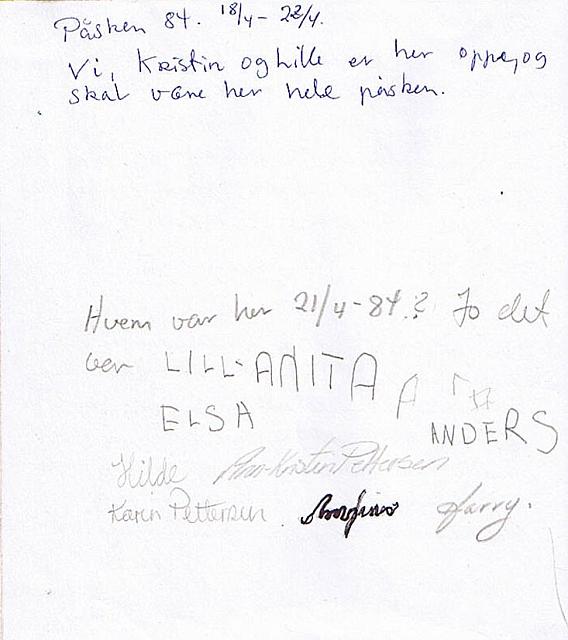 Påsken 84. 18/4 - 22/4.
Vi, Kristin og hille er her oppe, og
skal være her hele påsken.
Hvem var her 21/4 - 84.? Jo det
var LILL-ANITA A
ELSA ANDERS
Hilde Ann-Kristin Pettersen
Karin Pettersen Harry.